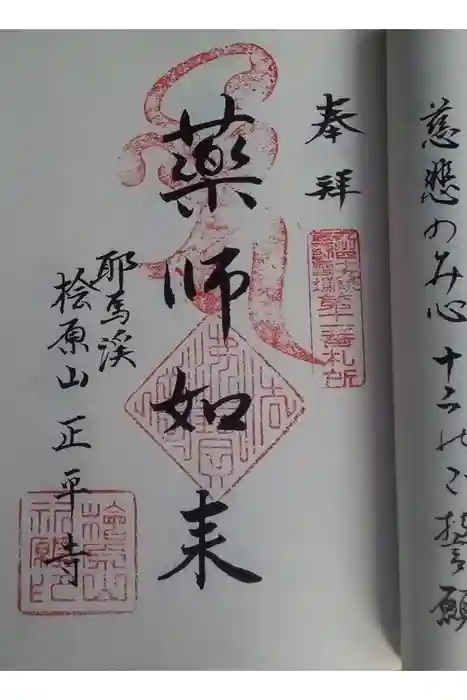 慈悲のみ心十二の
誓願
奉拝
薬師如来
耶馬渓
桧原山 正平寺
番札所